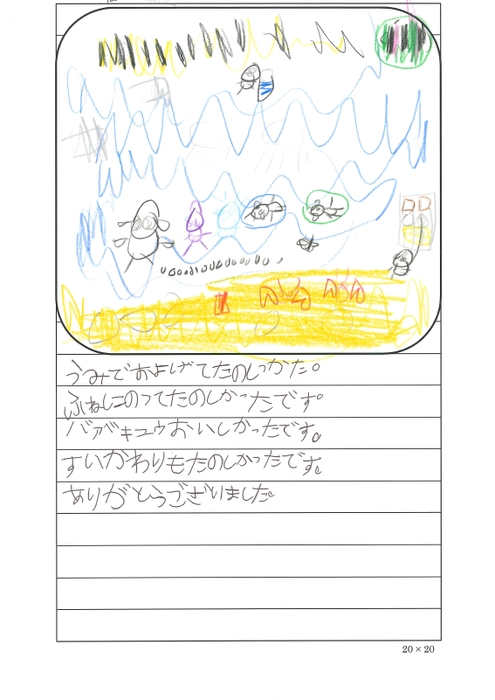 うみでおよげてたのしかた。
ふねにのってたのしかったです。
バァベキュウおいしかったです。
すいかわりもたのしかったです。
ありがとうございました。
20×20